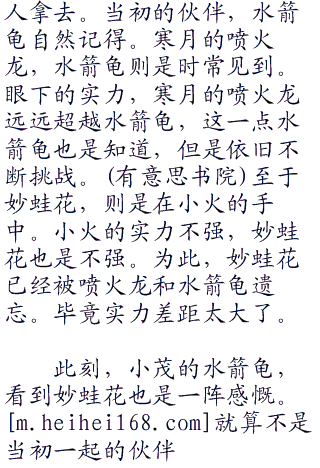 人拿去。当初的伙伴，水箭
龟自然记得。寒月的喷火
龙，水箭龟则是时常见到。
眼下的实力，寒月的喷火龙
远远超越水箭龟，这一点水
箭龟也是知道，但是依旧不
断挑战。(有意思书院)至于
妙蛙花，则是在小火的手
中。小火的实力不强，妙蛙
花也是不强。为此，妙蛙花
已经被喷火龙和水箭龟遗
忘。毕竟实力差距太大了。
此刻，小茂的水箭龟，
看到妙蛙花也是一阵感慨。
[m.heihei168.com]就算不是
当初一起的伙伴